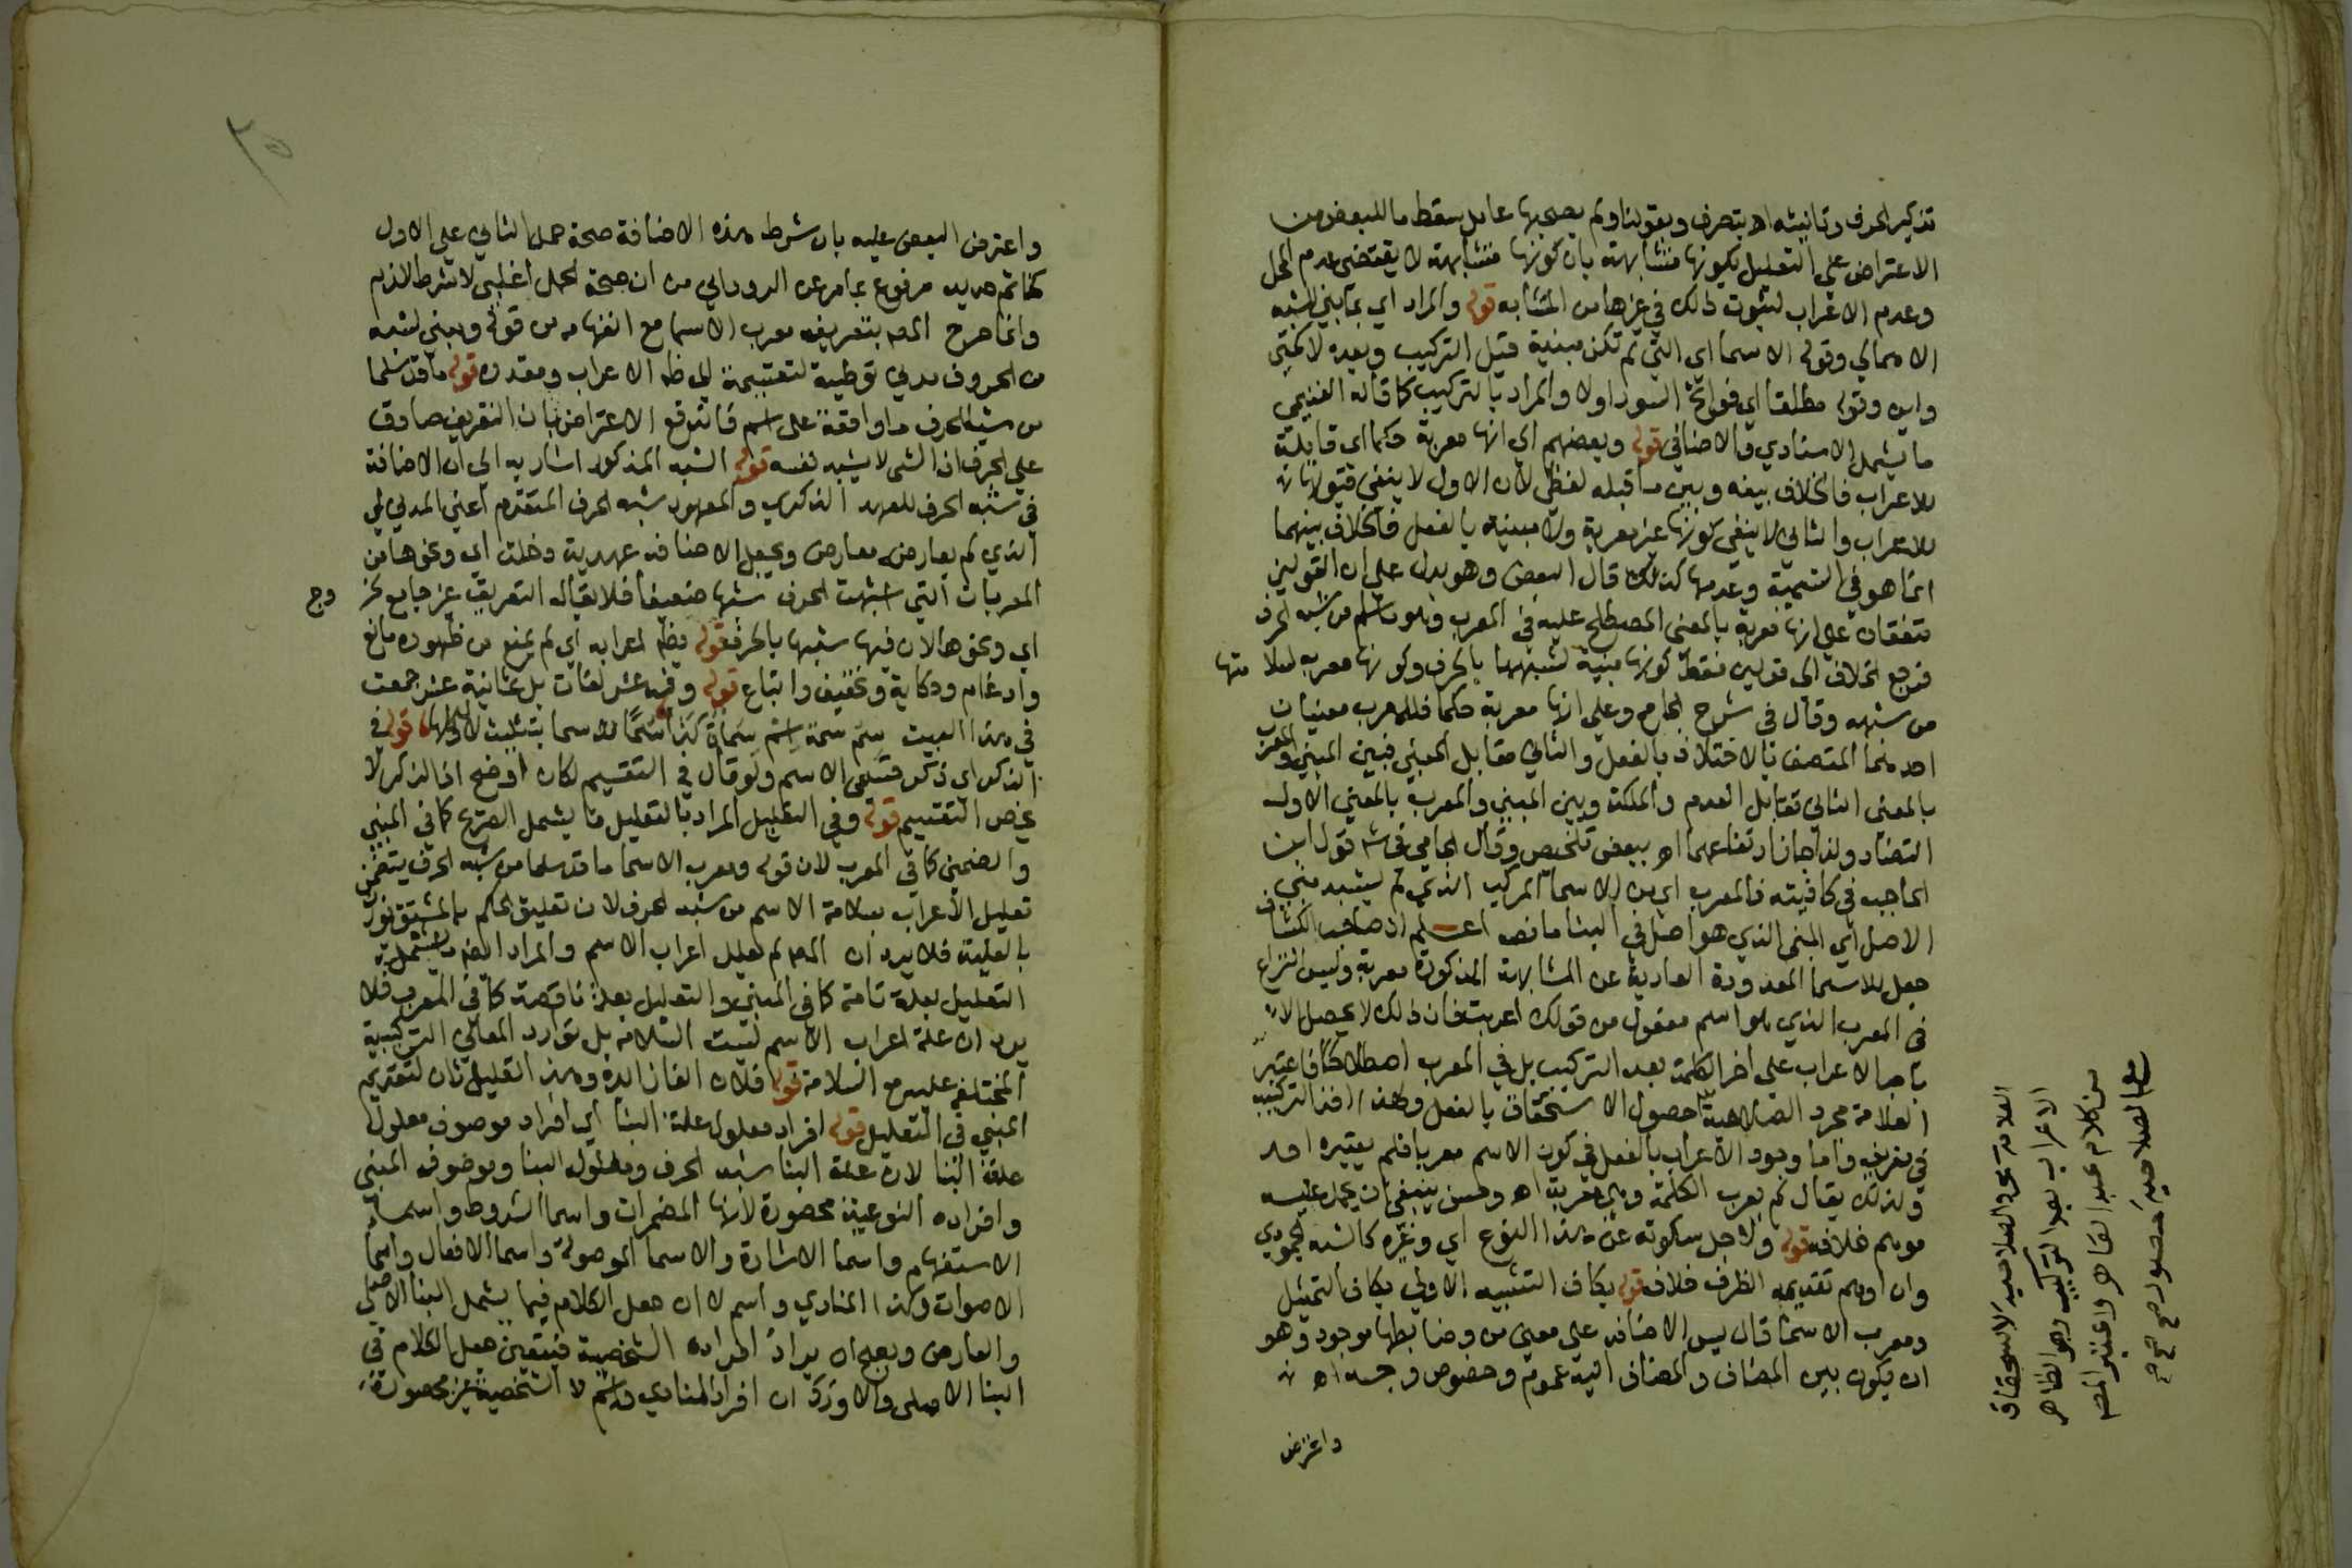 تذكير الحرف وتانيثه اه بتصرف وبقولنا ولم يصحبها عامل سقط ما للبعض من
الاعتراض علي التعليل بكونها متشابهة بان كونها متشابهة لا يقتضى عدم المحل
وعدم الاعراب لثبوت ذلك في غيرها من المتشابه قوله والمراد اي بمابني لشبه
الاهمالي وقوله الاسما اي التي لم تكن مبنية قبل التركيب وبعده لا كمتي
واين وقوله مطلقا اي فواتح السور اولا والمراد بالتركيب كما قاله الغنيمي
ما يشمل الاسنادي والاضافي قوله وبعضهم اي انها معربة حكما اي قابلة
للاعراب فالخلاف بينه وبين ما قبله لفظي لان الاول لا ينفي قبولها
للاعراب والثاني لا ينفي كونها غير معربة ولا مبنية بالفعل فالخلاف بينهما
انما هو في التسمية وعدمها كذلك قال البعض وهو يدل علي ان القولين
متفقان علي انها معربة بالمعنى المصطلح عليه في المعرب وهو ما سلم من شبه الحرف
فرجع الخلاف الى قولين فقط كونها مبنية لشبهها بالحرف وكونها معربة لسلامتها
من شبهه وقال في شرح الجامع وعلى انها معربة حكما فللمعرب معنيان
احدهما المتصف بالاختلاف بالفعل والثاني مقابل المبني فبين المبني والمعرب
بالمعنى الثاني تقابل العدم والملكة وبين المبني والمعرب بالمعني الاول
التضاد ولذا جاز ارتفاعهما اه ببعض تلخيص وقال الجامي في شرح قول ابن
الحاجب في كافيته فالمعرب اي من الاسما المركب الذي لم يشبه مبني
الاصل اي المبنى الذي هو اصل في البنا ما نصه اعلم ان صاحب الكشاف
جعل الاسما المعدودة العارية عن المشابهة المذكورة معربة وليس النزاع
في المعرب الذي هو اسم مفعول من قولك اعربت فان ذلك لا يحصل الا
باجرا الاعراب على اخر الكلمة بعد التركيب بل في المعرب اصطلاحا فاعتبر
العلامة مجرد الصلاحية حصول الاستحقاق بالفعل ولهذا اخذ التركيب
في تعريفه واما وجود الاعراب بالفعل في كون الاسم معربا فلم يعتبره احد
ولذلك يقال لم يعرب الكلمة وهي معربة اه وحسن ينبغي ان يحمل عليه
موهم خلافه قوله ولاجل سكوته عن هذا النوع اي وغيره كالشبه الجمودي
وان اوهم تقديمه الظرف خلافه قوله بكاف التشبيه الاولي بكاف التمثيل
ومعرب الاسما قال يس الاضافة على معنى من وضابطها موجود وهو
ان يكون بين المضاف والمضاف اليه عموم وخصوص وجهي اه
واعترض
العلامة مجرد الصلاحية لاستحقاق
الاعراب بعد التركيب وهو الظاهر
من كلام عبد القاهر واعتبر المص
مع الصلاحية حصول صح صح
٢٥
واعترض البعض عليه بان شرط هذه الاضافة صحة حمل الثاني علي الاول
كخاتم حديد مرفوع بما مر عن الروداني من ان صحة الحمل اغلبي لا شرط لازم
وانما صرح المص بتعريف معرب الاسما مع انفهامه من قوله ومبني لشبه
من الحروف مدني توطية لتقسيمه الي ظاهر الاعراب ومقدره قوله ما قد سلما
من شبه الحرف ما واقعة على اسم فاندفع الاعتراض بان التعريف صادق
علي الحرف اذ الشى لا يشبه نفسه قوله الشبه المذكور اشار به الي ان الاضافة
في شبه الحرف للعهد الذكري والمعهود شبه الحرف المتقدم اعني المدني
الذي لم يعارضه معارض وبجعل الاضافة عهدية دخلت اي ونحوها من
المعربات التي اشبهت الحرف شبها ضعيفا فلا يقال التعريف غير جامع لخروج
اي ونحوها لان فيها شبها بالحرف قوله يظهر اعرابه اي لم يمنع من ظهوره مانع
وادغام وحكاية وتخفيف واتباع قوله وفيه عشر لغات بل ثمانية عشر جمعت
في هذا البيت سم سمة اسم سماة كذا سما سما بتثليث لاولها قوله في
الذكر اي ذكر قسمي الاسم ولو قال في التقسيم لكان اوضح اذ الذكر لا
يخص التقسيم قوله وفي التعليل المراد بالتعليل ما يشمل الصريح كما في المبني
والضمني كما في المعرب لان قوله ومعرب الاسما ما قد سلما من شبه الحرف يتضمن
تعليل الاعراب بسلامة الاسم من شبه الحرف لان تعليق الحكم بالمشتق يؤذن
بالعلية فلا يرد ان المص لم يعلل اعراب الاسم والمراد ايضا ما يشمل
التعليل بعلة تامة كما في المبني والتعليل بعلة ناقصة كما في المعرب فلا
يرد ان علة اعراب الاسم ليست السلامة بل توارد المعاني التركيبية
المختلفة عليه مع السلامة قوله فلان الفا زائدة وهذا تعليل ثان لتقديم
المبني في التعليل قوله افراد معلول علة البنا اي افراد موصوف معلول
علة البنا لان علة البنا شبه الحرف ومعلول البنا وموضوف المبني
وافراده النوعية محصورة لانها المضمرات واسما الشروط واسما
الاستفهام واسما الاشارة والاسما الموصولة واسما الافعال واسما
الاصوات وكذا المنادي واسم لا ان جعل الكلام فيما يشمل البنا الاصلي
والعارض ويصح ان يراد افراده الشخصية فيتعين جعل الكلام في
البنا الاصلي والا ورد ان افراد المنادي واسم لا الشخصية غير محصورة